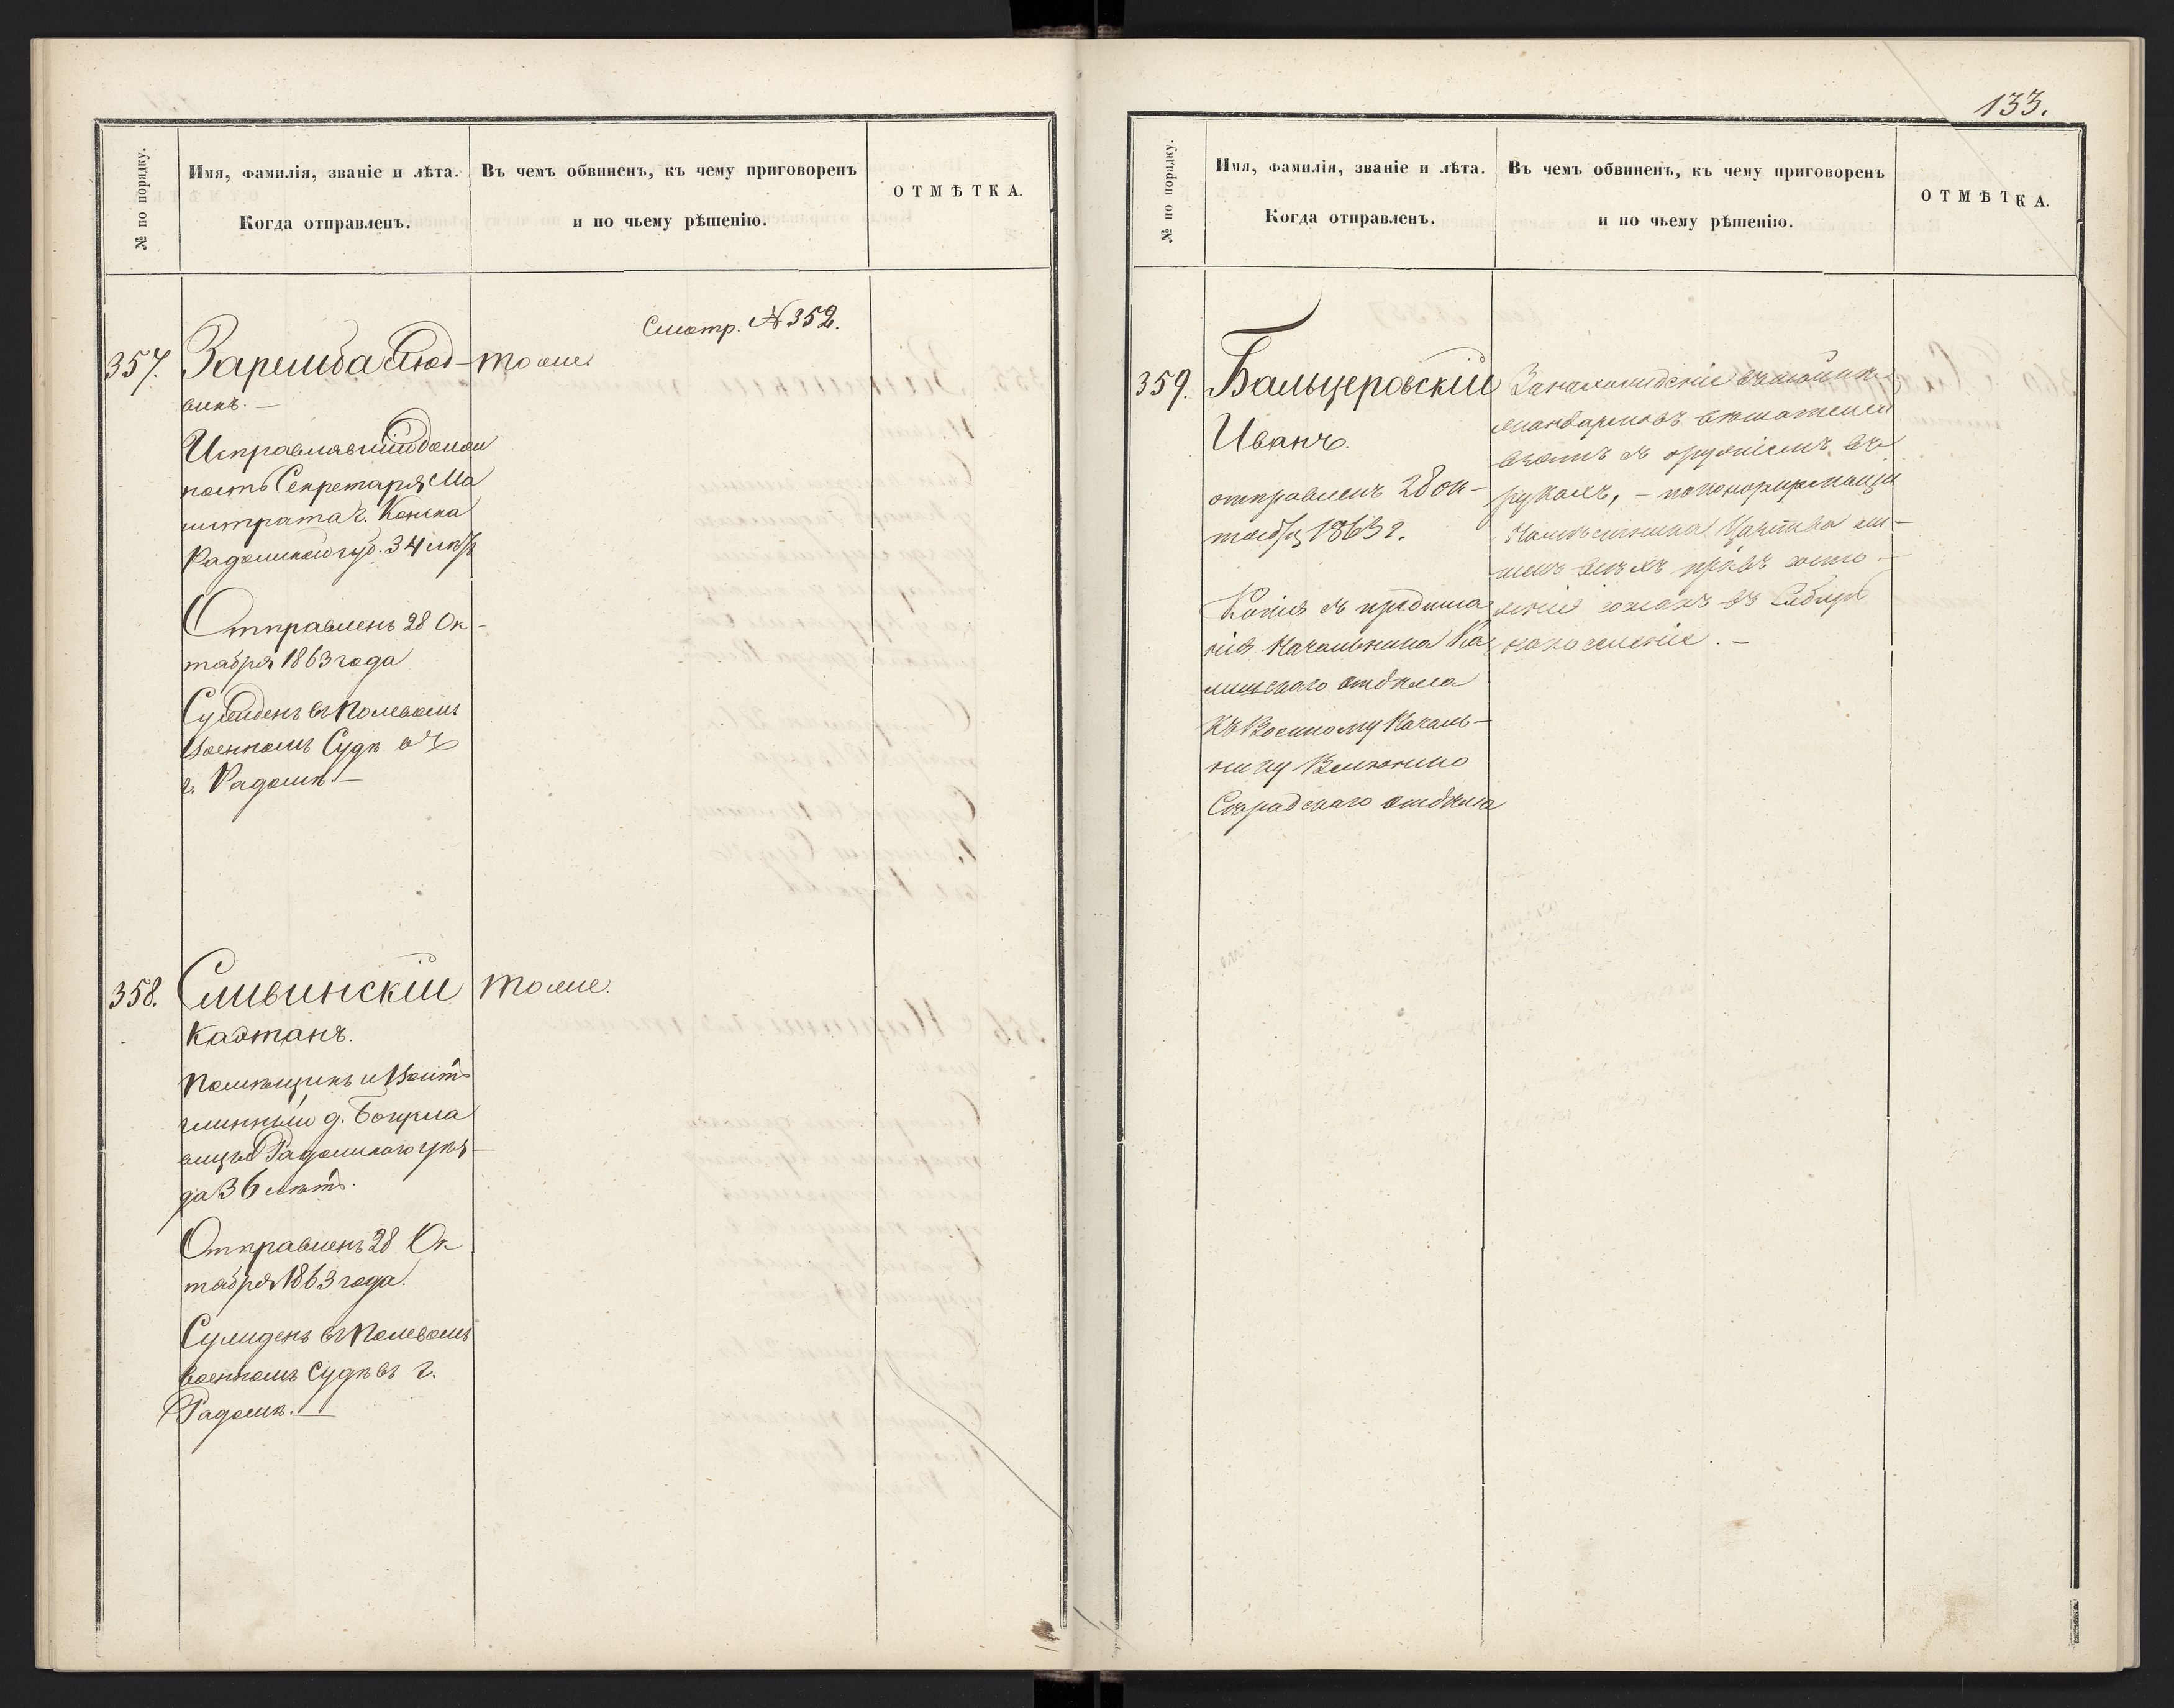 № по порядку.
Имя, фамилія, званіе и лѣта.
Когда отправленъ.
Въ чемъ обвиненъ, къ чему приговоренъ
и по чьему рѣшенію.
ОТМѢТКА.
Смотр. № 352.
357. Заремба Люд- тоже.
викъ. —
Исправлявшій должн
ность Секретаря Ма
гистрата г. Конска
Радомской губ. 34 лѣтъ
Отправленъ 28 Ок-
тября 1863 года
Сужденъ въ Полевомъ
Военномъ Судѣ въ
г. Радомѣ. —
358. Сливинскій тоже.
Каэтанъ.
Помѣщикъ и Войтъ
гминный д.
Радомскаго уѣз-
да 36 лѣтъ.
Отправленъ 28 Ок
тября 1863 года.
Сужденъ въ Полевомъ
военномъ Судѣ въ г.
Радомѣ. —
133.
№ по порядку.
Имя, фамилія, званіе и лѣта.
Когда отправленъ.
Въ чемъ обвиненъ, къ чему приговоренъ
и по чьему рѣшенію.
ОТМѢТКА.
359. Бальцеровскій
Иванъ.
отправленъ 28 ок-
тября 1863 г.
Копія съ предписа
нія Начальника Ка
лишскаго отдѣла
Къ Военному Началь-
нику Велюно
Сѣрадскаго отдѣла
За нахожденіе въ шайкѣ
жандармовъ
взятъ съ оружіемъ въ
рукахъ, — по конфирмаціи
Намѣстника Царства ли-
шенъ всѣхъ правъ состо-
янія сосланъ въ Сибирь
на поселеніе. —